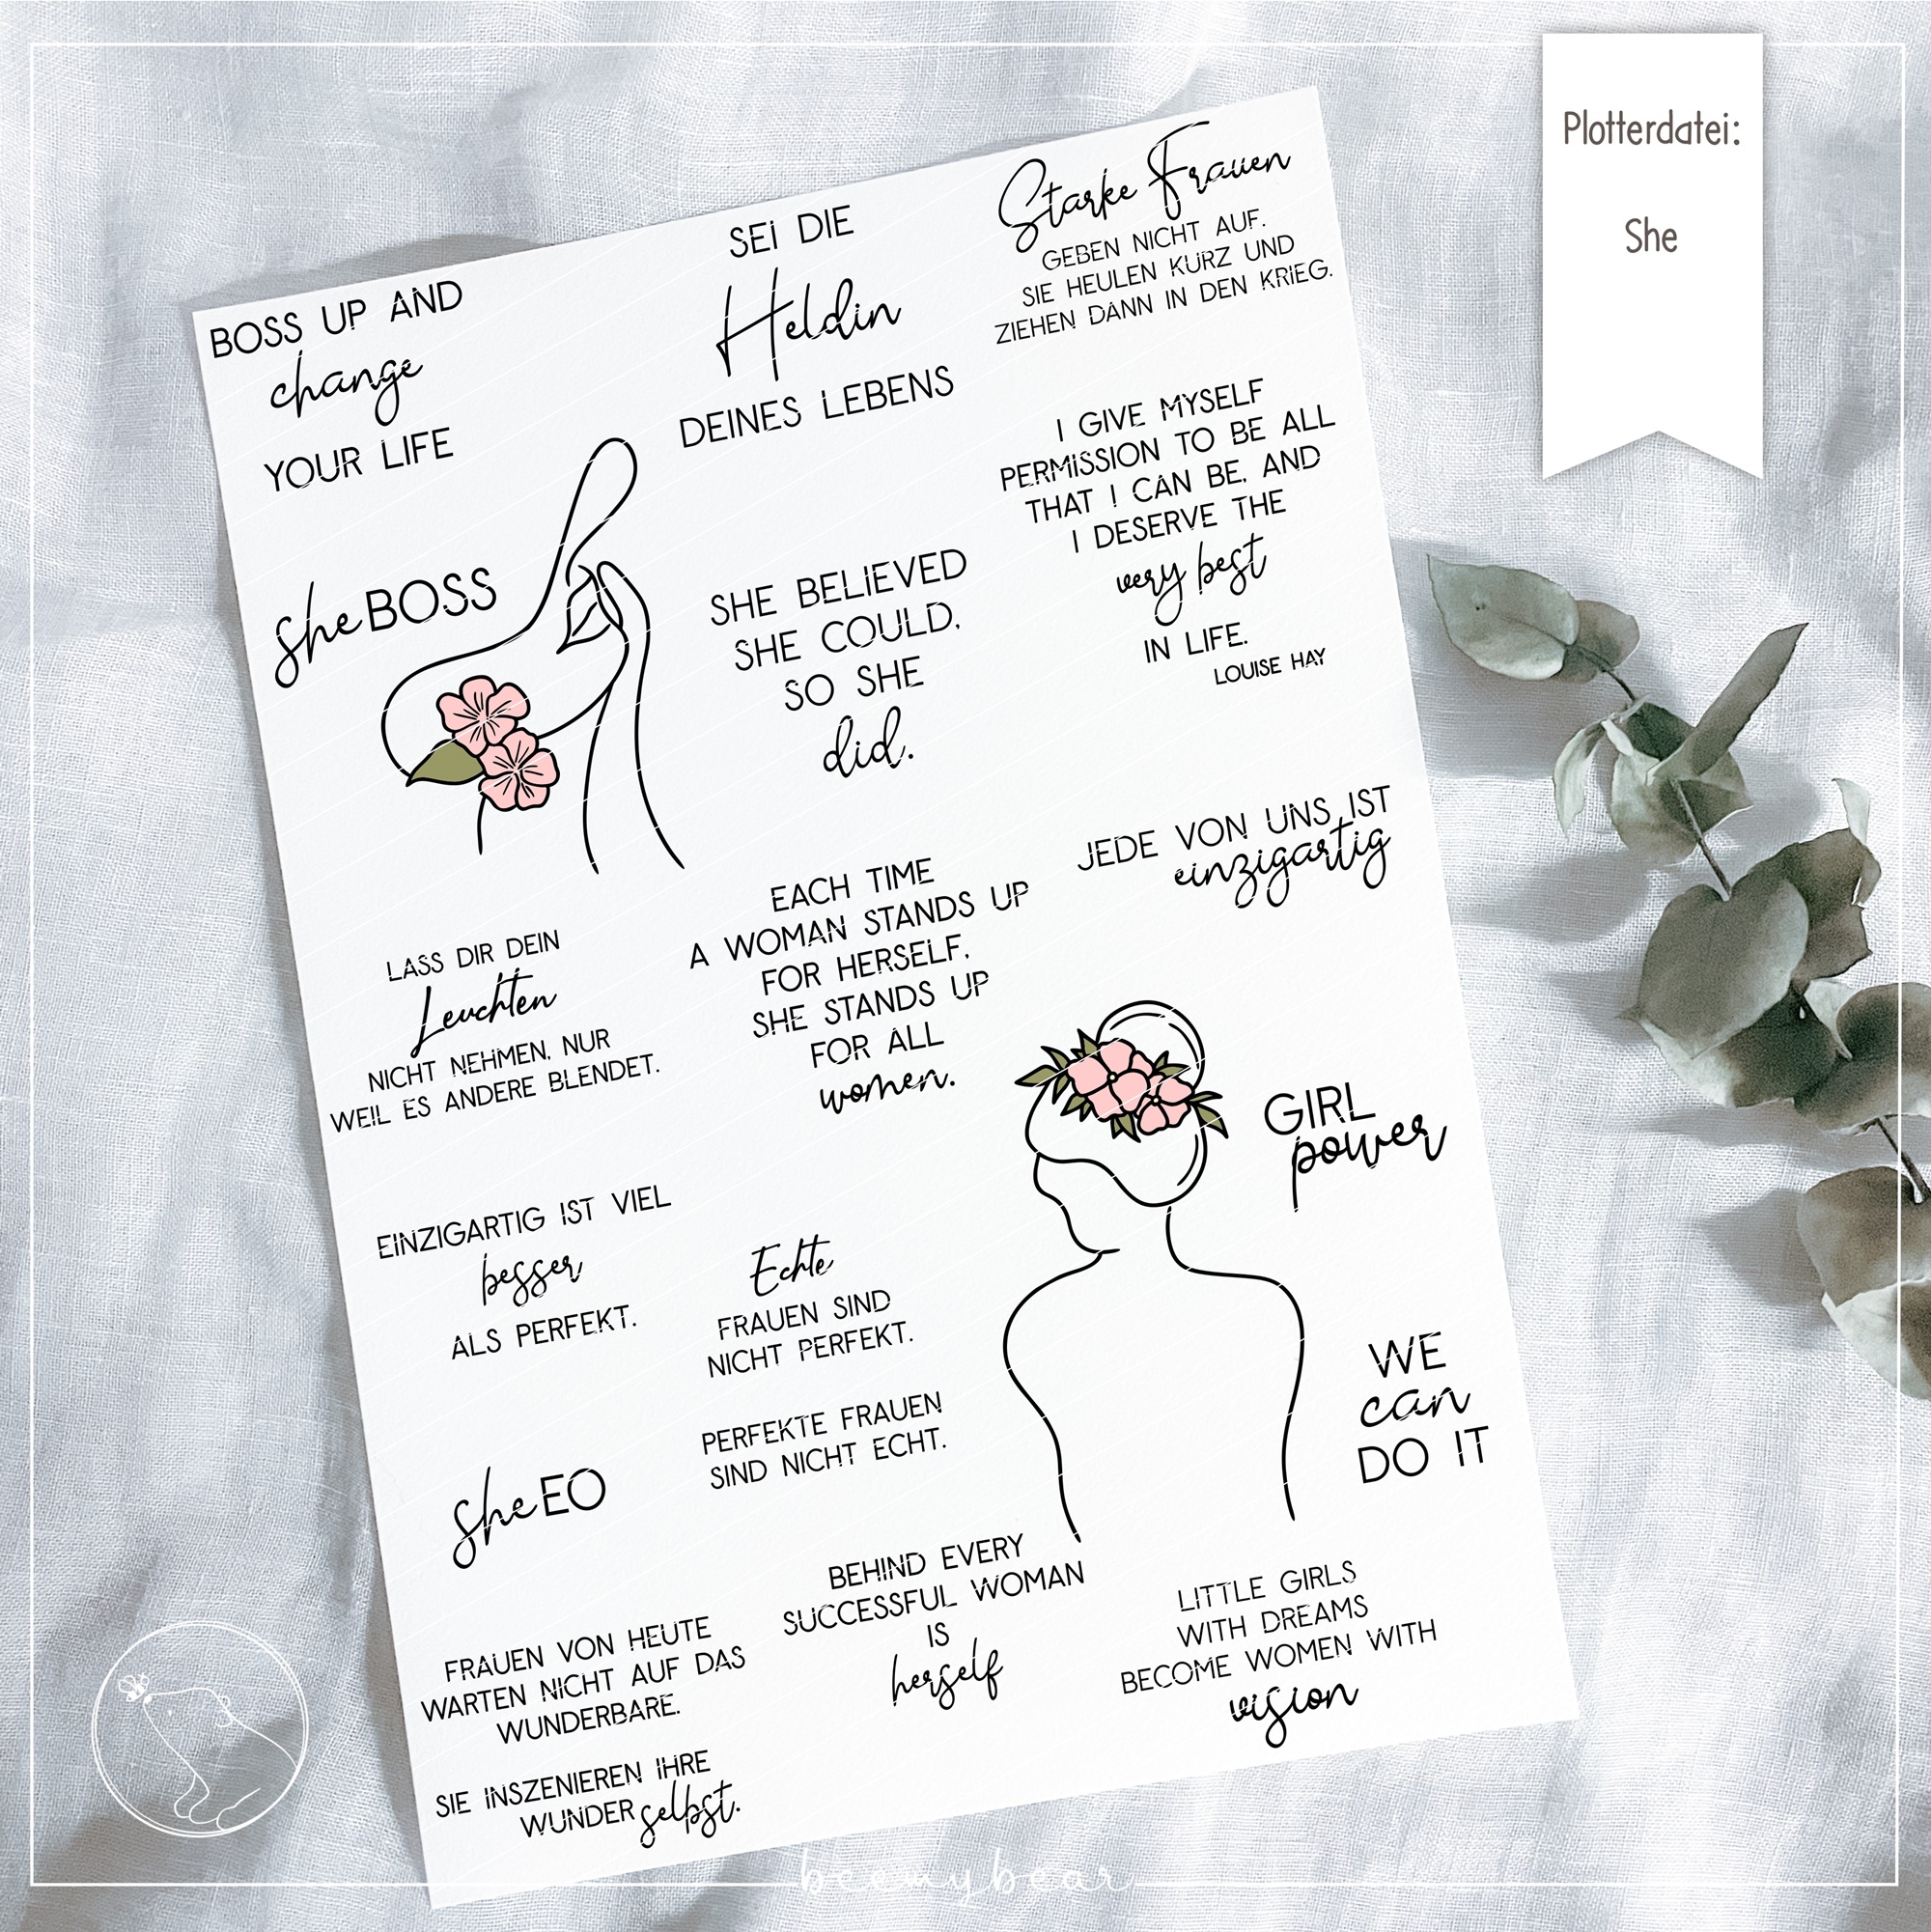 Plotterdatei:
She
BOSS UP AND
change
YOUR LIFE
SEI DIE
Heldin
DEINES LEBENS
Starke Frauen
GEBEN NICHT AUF.
SIE HEULEN KURZ UND
ZIEHEN DANN IN DEN KRIEG.
I GIVE MYSELF
PERMISSION TO BE ALL
THAT I CAN BE, AND
I DESERVE THE
very best
IN LIFE.
LOUISE HAY
she BOSS
SHE BELIEVED
SHE COULD,
SO SHE
did.
JEDE VON UNS IST
einzigartig
LASS DIR DEIN
Leuchten
NICHT NEHMEN, NUR
WEIL ES ANDERE BLENDET.
EACH TIME
A WOMAN STANDS UP
FOR HERSELF,
SHE STANDS UP
FOR ALL
women.
GIRL
power
EINZIGARTIG IST VIEL
besser
ALS PERFEKT.
Echte
FRAUEN SIND
NICHT PERFEKT.
PERFEKTE FRAUEN
SIND NICHT ECHT.
WE
can
DO IT
she EO
FRAUEN VON HEUTE
WARTEN NICHT AUF DAS
WUNDERBARE.
SIE INSZENIEREN IHRE
WUNDER selbst.
BEHIND EVERY
SUCCESSFUL WOMAN
IS
herself
LITTLE GIRLS
WITH DREAMS
BECOME WOMEN WITH
vision
beemybear